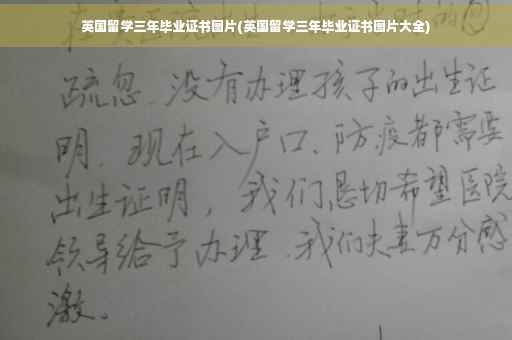 英国留学三年毕业证书图片(英国留学三年毕业证书图片大全)
疏忽、没有办理孩子的出生证
明、现在入户口、防疫都需要
出生证明，我们恳切希望医院
领导给予办理、我们夫妻万分感
激。